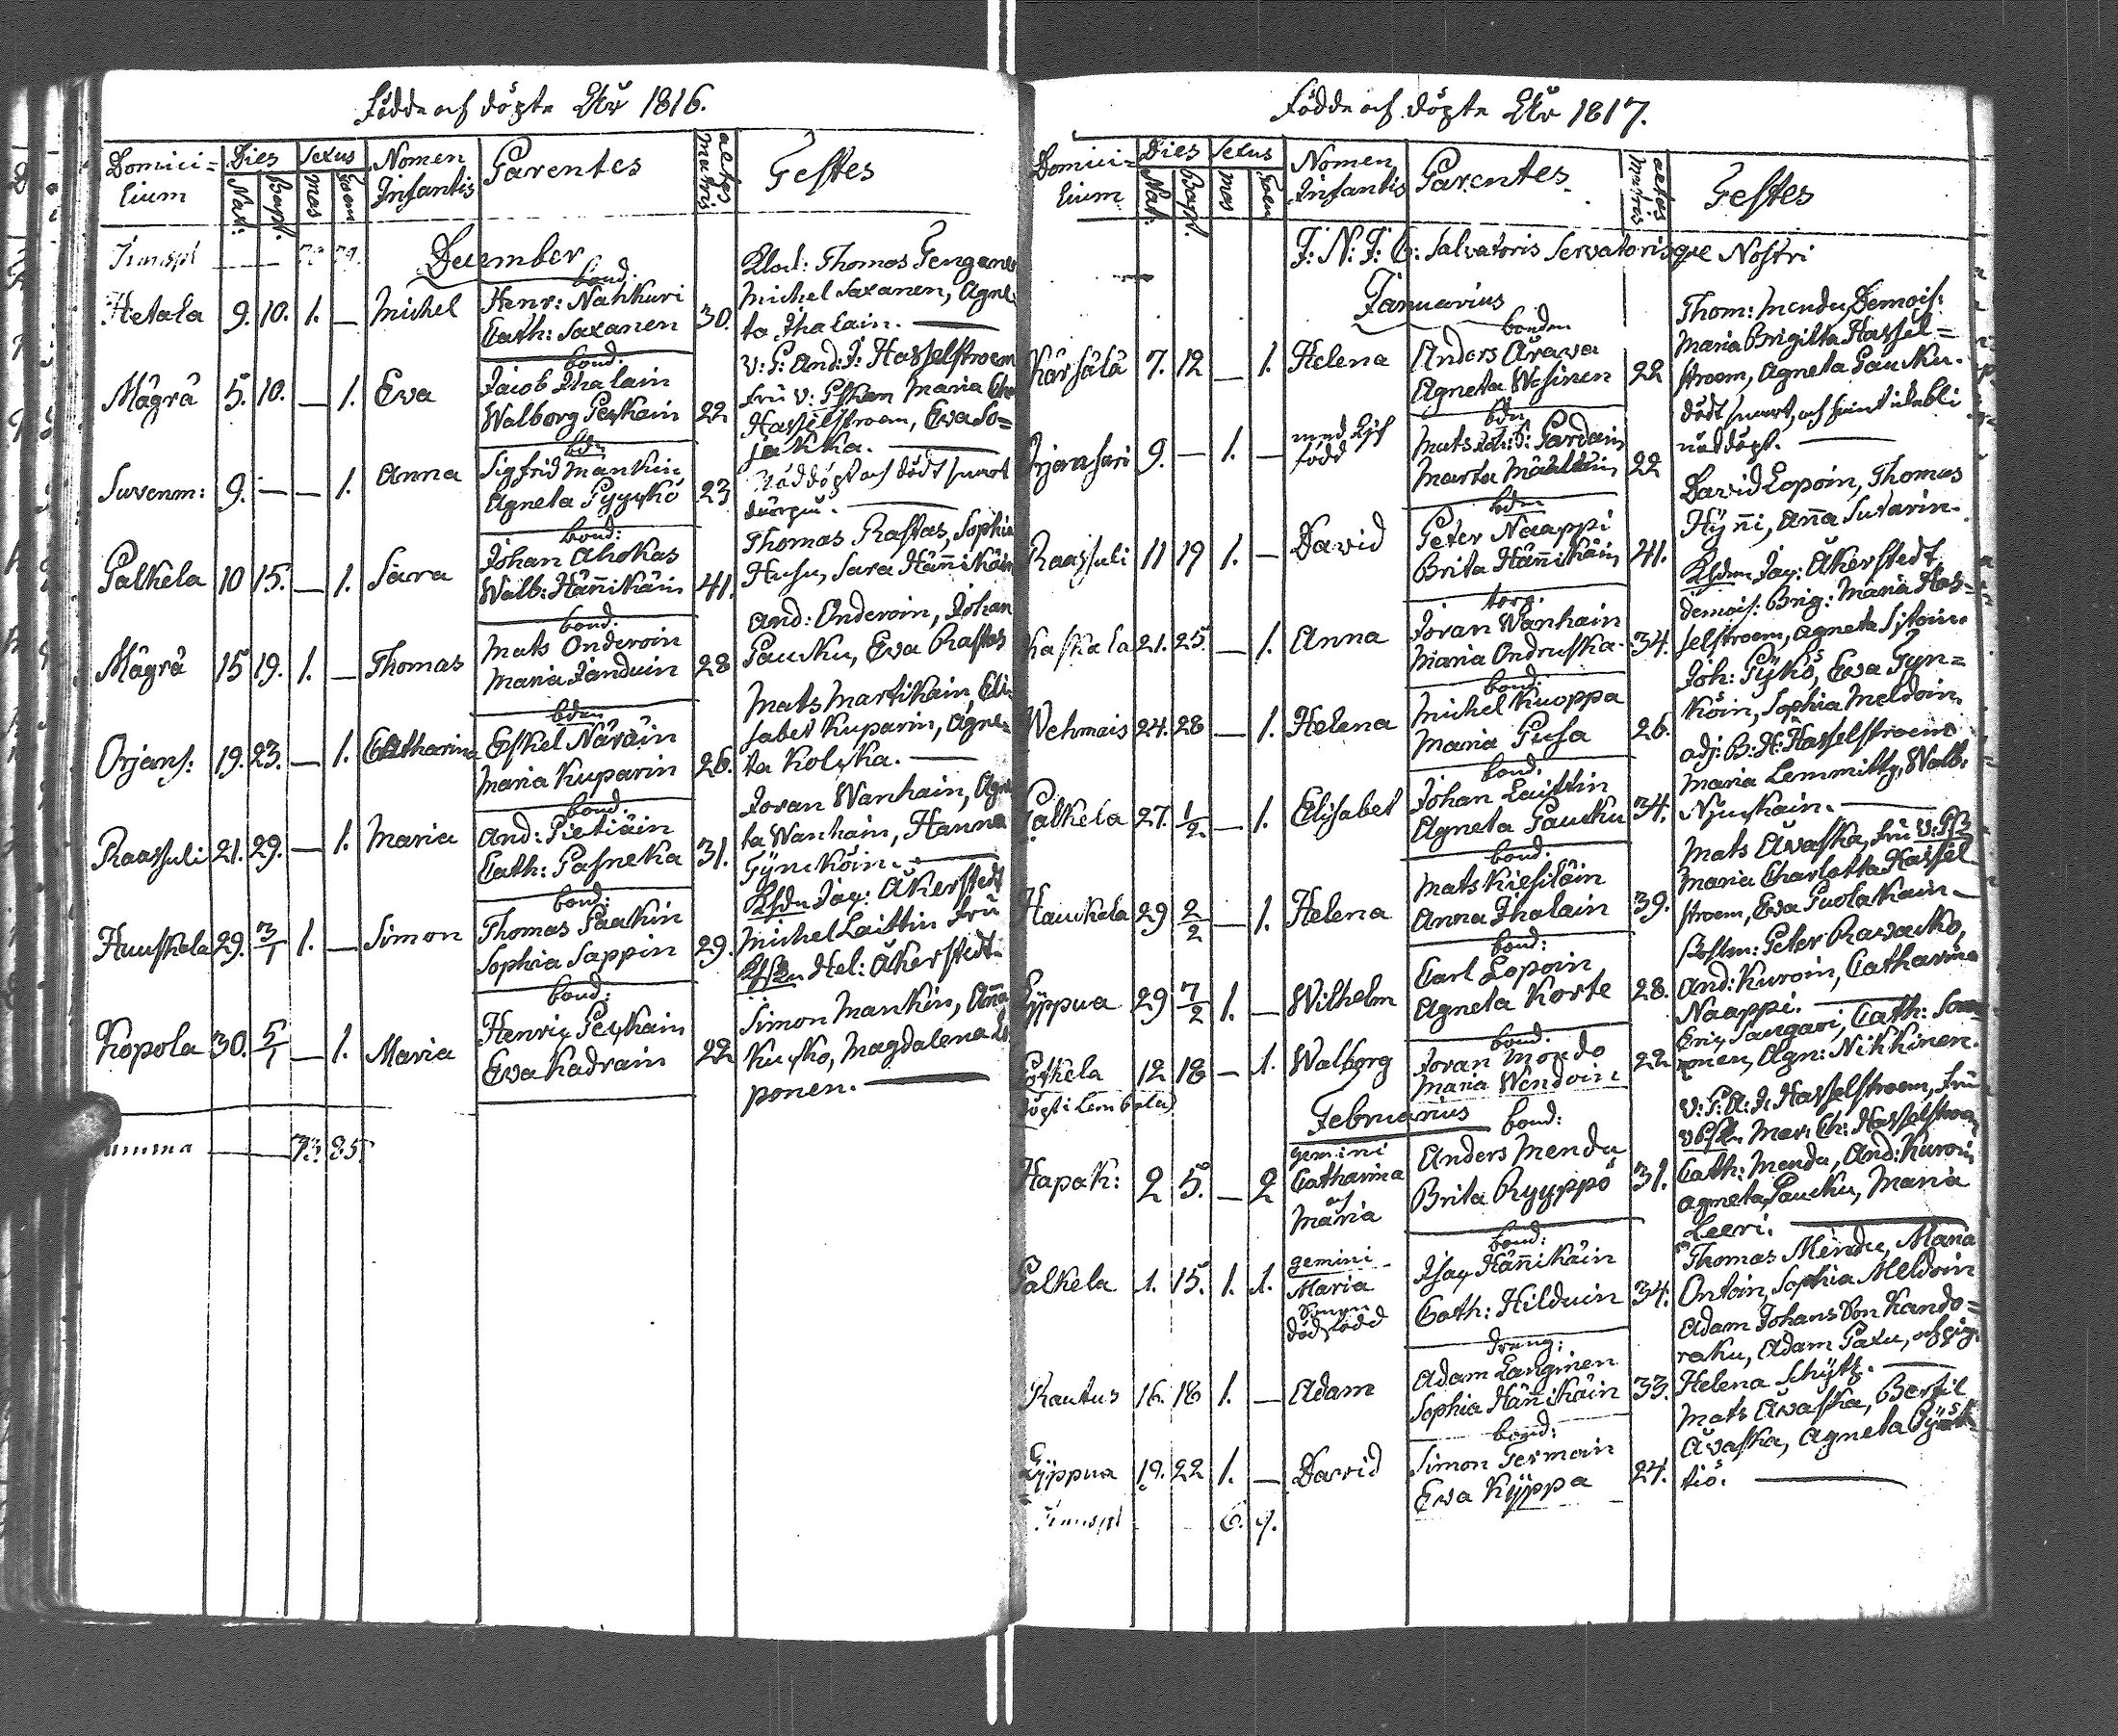 Födde och döpte År 1816.
Domici=
lium
Dies
Nat:
Bapt.
Sexus
mas
Foem
Nomen
Infantis
Parentes
aetas
matris
Testes
Transpt
December
Hetala 9. 10. 1. — Michel
bond:
Henr: Nahkuri
Cath: Saxanen 30.
Klock: Thomas Penganen
Michel Saxanen, Agne-
ta Ihalain. —
Mägrä 5. 10. — 1. Ewa
bond:
Jacob Ihalain
Walborg Peykain 22
v: P: And: J: Hasselstroem
Fru v: Pskan Maria Ch
Hasselstroem, Ewa So=
jakka. —
Suvenm: 9. — — 1. Anna
bdn
Sigfrid Mankin
Agneta Pyyykö 23
Nöddöpt och dödt snart
därpå. —
Palkela 10 15. — 1. Sara
bond:
Johan Ahokas
Walb: Häñikäin 41.
Thomas Rastas, Sophia
Husu, Sara Häñikäin
Mägrä 15 19. 1. — Thomas
bond:
Mats Onderoin
Maria Janduin 28
And: Onderoin, Johan
Paucku, Ewa Rastas
Orjans: 19. 23. — 1. Catharina
bden
Eskel Näräin
Maria Kuparin 26.
Mats Martikain, Eli-
sabet Kuparin, Agne-
ta Kolyka. —
Raassuli 21. 29. — 1. Maria
bond:
And: Pietiäin
Cath: Pasneka 31.
Joran Wanhain, Agne
ta Wanhain, Hanna
Tyncköin. —
Huuskola 29. 3/1 1. — Simon
bond:
Thomas Paakin
Sophia Sappin 29.
Jay: Åkerstedt
Michel Laittin Fru
Hel: Åkerstedt.
Kopola 30. 5/1 — 1. Maria
bond:
Henric Peykain
Ewa Kadrain 22
Simon Mankin, Aña
Kuyko, Magdalena
ponen. —
Summa — 73. 85.
Födde och döpte År 1817.
Domici=
lium
Dies
Nat:
Bapt.
Sexus
mas
Foem
Nomen
Infantis
Parentes
aetas
matris
Testes
J: N: J: C: Salvatoris Servatorisque Nostri
Januarius
Kärsälä 7. 12 — 1. Helena
bonden
Anders Ärawa
Agneta Wäsinen 22
Thom: Mendu, Demois:
Maria Brigitta Hassel=
stroem, Agneta Paucku.
Orjansari 9. — 1. —
född
bdn
Mats Joh:S: Pardain
Marta Mäkläin 22
dödt snart, och
nöddöpt. —
Raassuli 11 19 1. — David
bdn
Peter Naappi
Brita Häñikäin 41.
David Lopoin, Thomas
Hÿñi, Aña Sutarin.
Kaskala 21. 25. — 1. Anna
torp.
Joran Wanhain
Maria Ondruska 34.
Jay: Åkerstedt
demois: Brig: Maria Has=
selstroem, Agneta Sitoin.
Wehmais 24. 28 — 1. Helena
bond:
Michel Kuoppa
Maria Pusa 26.
Joh: Pÿkö, Ewa Tyn=
köin, Sophia Meldoin.
Palkela 27. 1/2 — 1. Elisabet
bond:
Johan Laittin
Agneta Paucku 34.
adj: B: H: Hasselstroem
Maria Lemmitty, Walb:
Nyuskain. —
Hauckela 29 2/2 — 1. Helena
bond:
Mats Kiesiläin
Anna Ihalain 39.
Mats Äwaska, Fru v: P
Maria Charlotta Hassel
stroem, Ewa Puolakain —
Lyppua 29 7/2 1. — Wilhelm
bond:
Carl Lopoin
Agneta Korte 28.
Peter Rawacko,
And: Kuroin, Catharina
Naappi. —
Coskela 12 18 — 1. Walborg
Döpt i Lembalas
bond:
Joran Mondo
Maria Wendoin 22
Eric Saugari, Cath: Som
ronen, Agn: Nikkinen.
Februarius
Hapak: 2 5. — 2
gemini
Catharina
och
Maria
bond:
Anders Mendu
Brita Ryyppö 31.
v: P: A: J: Hasselstroem, Fru
Mar: Ch: Hasselstroem
Cath: Mendu, And: Kuroin
Agneta Paucku, Maria
Leeri. —
Palkela 1. 15. 1. 1.
gemini
Maria
Sonen
dödfödd
bond:
Isac Häñikäin
Cath: Hilduin 34.
Thomas Mendu, Maria
Ontoin, Sophia Meldoin
Rautus 16. 18 1. — Adam
dreng:
Adam Langinen
Sophia Häñikäin 33.
Adam Johans Son Kando=
raku, Adam Paxu, och pig:
Helena Schytz. —
Lyppua 19. 22 1. — David
bond:
Simon Termain
Ewa Kyppa 24.
Mats Äwaska, Bertil
Äwaska, Agneta
tiö. —
Transpt 6. 9.